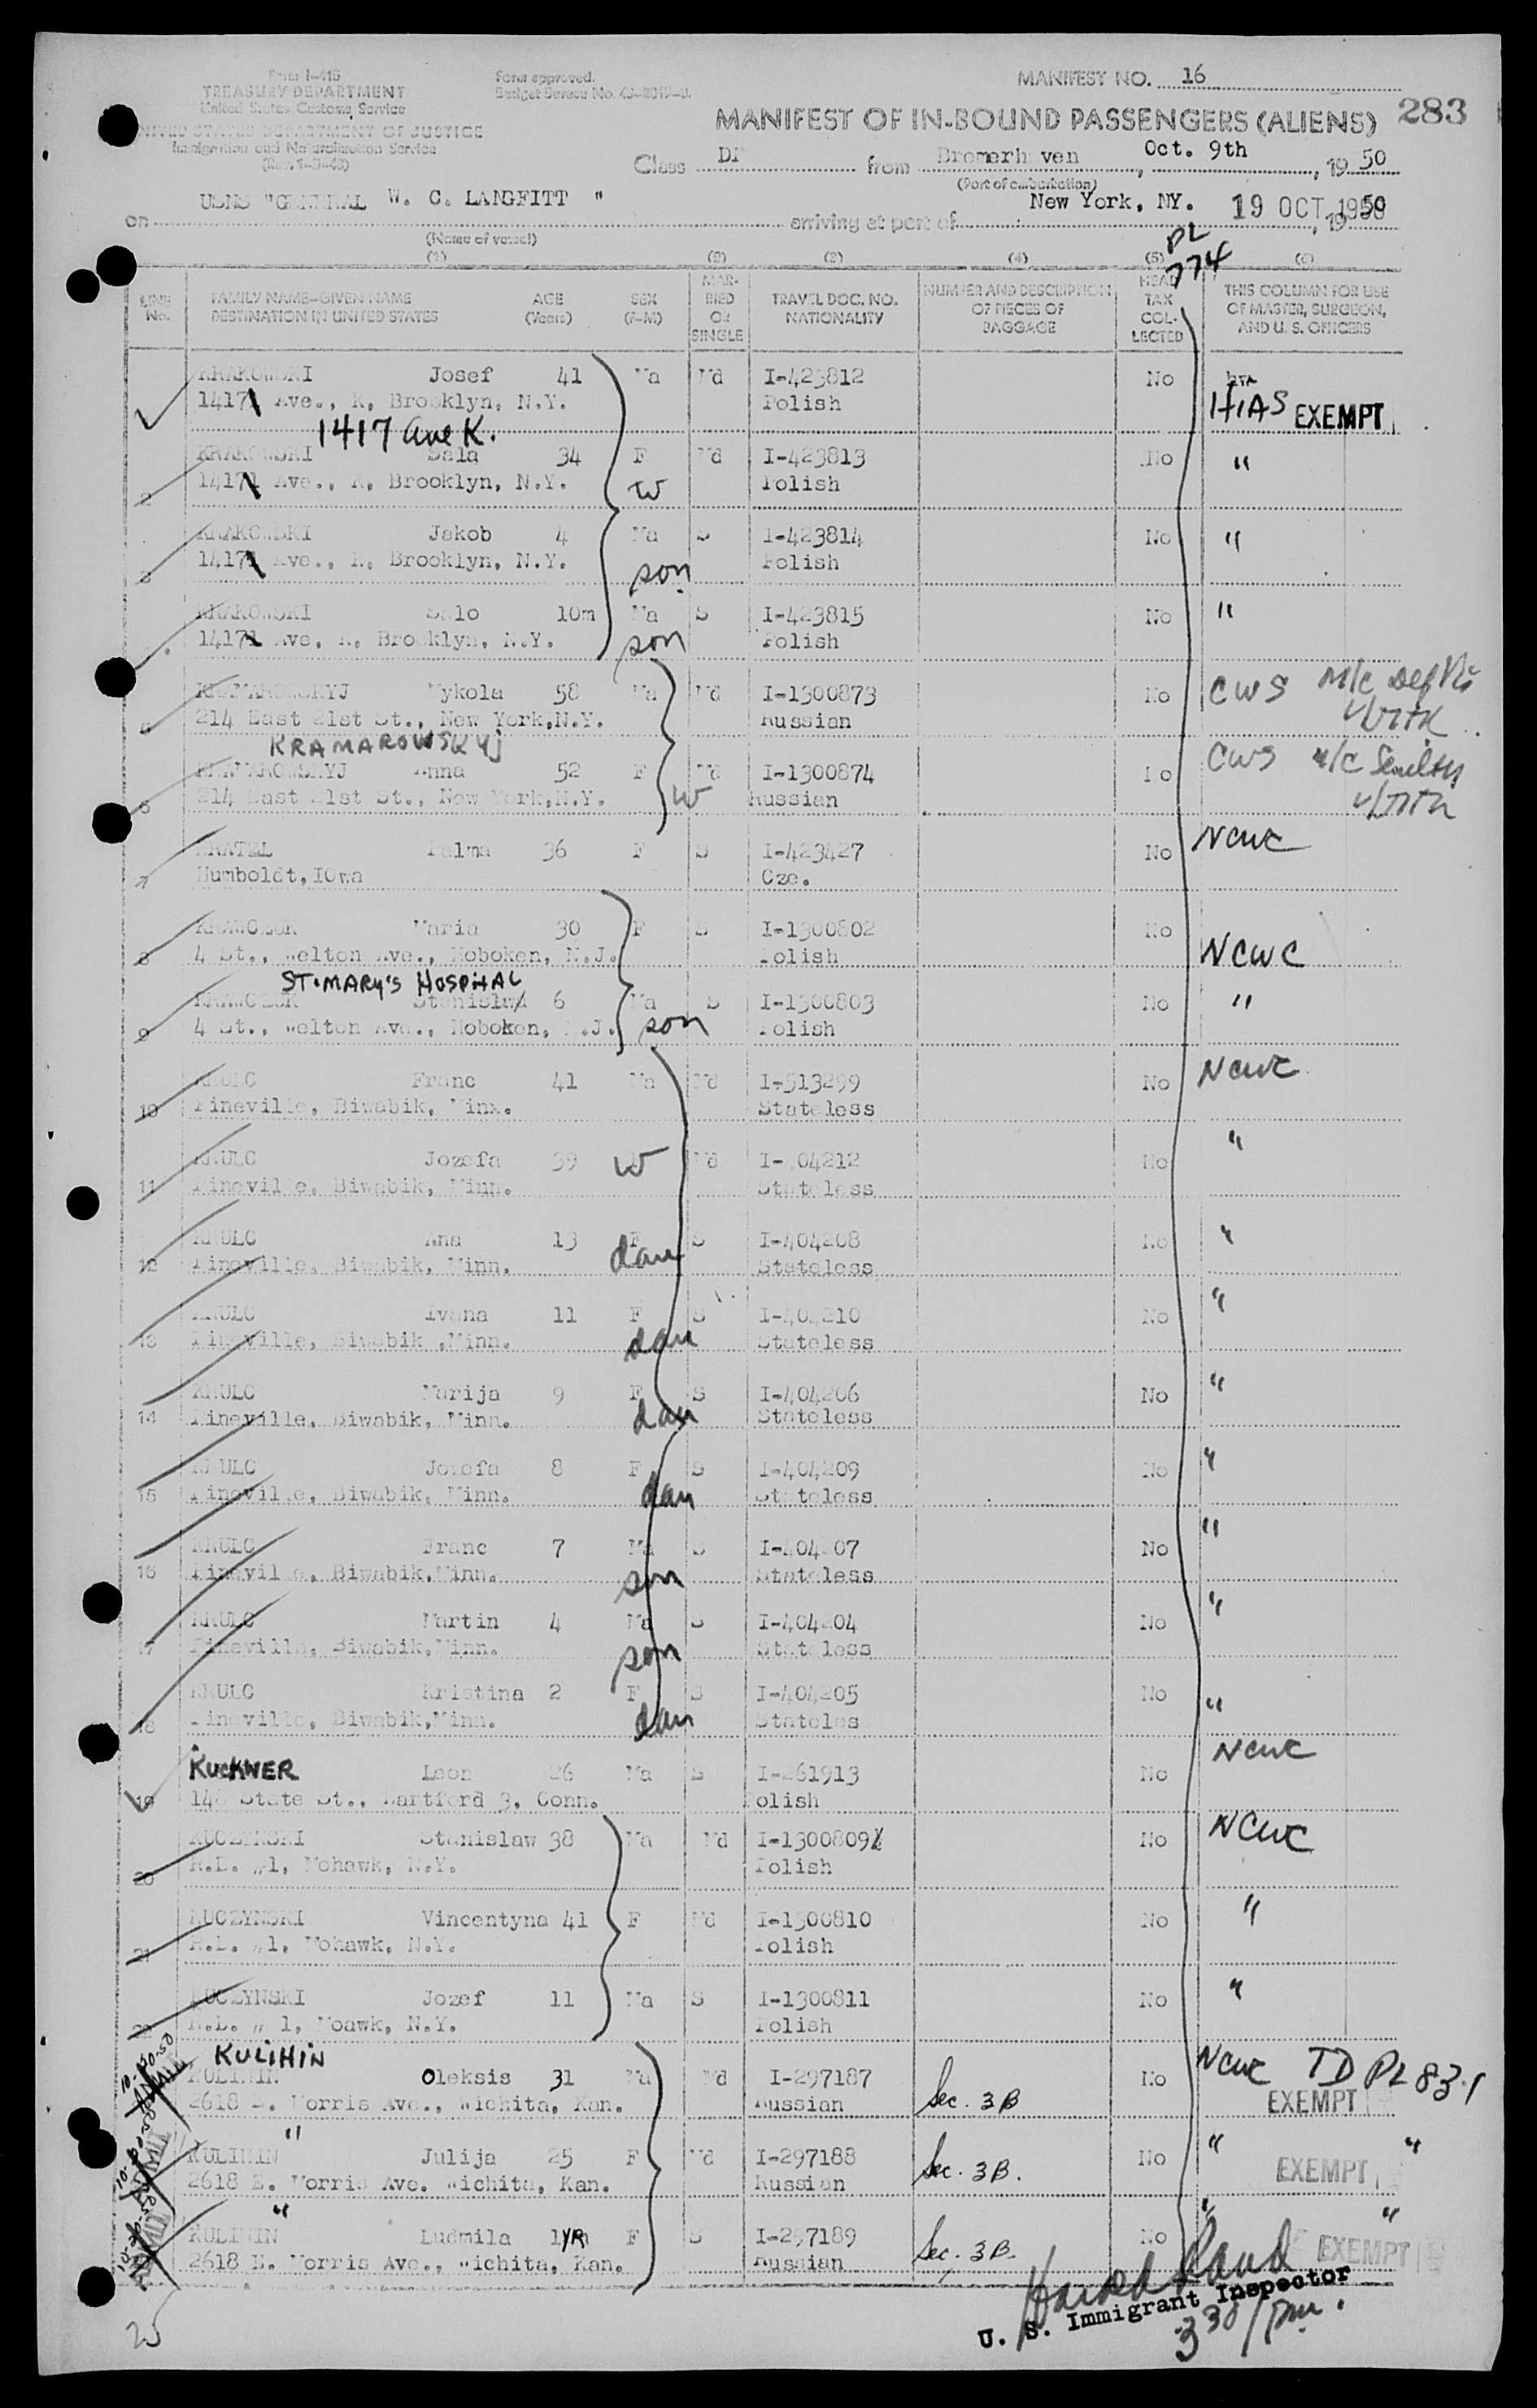 Form I-415
TREASURY DEPARTMENT
United States Customs Service
UNITED STATES DEPARTMENT OF JUSTICE
Immigration and Naturalization Service
Form approved.
Budget Bureau No.
MANIFEST NO. 16
MANIFEST OF IN-BOUND PASSENGERS (ALIENS) 283
Class DP from Bremerhaven, Oct. 9th, 19 50
(Port of embarkation)
on USNS "GENERAL W. C. LANGFITT " arriving at port of New York, NY. 19 OCT 1950, 19 50
(Name of vessel)
PL 774
(1) (2) (3) (4) (5) (6)
LINE No. FAMILY NAME—GIVEN NAME DESTINATION IN UNITED STATES AGE (Years) SEX (F-M) MARRIED OR SINGLE TRAVEL DOC. NO. NATIONALITY NUMBER AND DESCRIPTION OF PIECES OF BAGGAGE HEAD TAX COLLECTED THIS COLUMN FOR USE OF MASTER, SURGEON, AND U. S. OFFICERS
KRAKOWSKI Josef 41 Ma Md I-423812 No HIAS EXEMPT
1417 Ave., K, Brooklyn, N.Y. Polish
1417 Ave K.
2 KRAKOWSKI Sala 34 F Md I-423813 No "
1417 Ave., K, Brooklyn, N.Y. W Polish
3 KRAKOWSKI Jakob 4 Ma S I-423814 No "
1417 Ave., K, Brooklyn, N.Y. son Polish
KRAKOWSKI Salo 10m Ma S I-423815 No "
1417 Ave, K, Brooklyn, N.Y. son Polish
5 KRAMAROWSKYJ Mykola 58 Ma Md I-1300873 No CWS M/c
214 East 21st St., New York,N.Y. Russian
KRAMAROWSKYj
6 KRAMAROWSKYJ Anna 52 F Md I-1300874 No CWS M/c Senility
214 East 21st St., New York,N.Y. W Russian
7 KRATEL Palma 36 F S I-423427 No NCWC
Humboldt, IOwa Cze.
8 KRAWCZUK Maria 30 F S I-1300802 No NCWC
4 St., Welton Ave., Hoboken, N.J. Polish
ST. MARY'S HOSPITAL
9 KRAWCZUK Stanislaw 6 Ma S I-1300803 No "
4 St., Welton Ave., Hoboken, N.J. son Polish
10 KRULC Franc 41 Ma Md I-513299 No NCWC
Pineville, Biwabik, Minn. Stateless
11 KRULC Jozefa 39 W Md I-404212 No "
Pineville, Biwabik, Minn. Stateless
12 KRULC Ana 13 F S I-404208 No "
Pineville, Biwabik, Minn. dau Stateless
13 KRULC Ivana 11 F S I-404210 No "
Pineville, Biwabik ,Minn. dau Stateless
14 KRULC Marija 9 F S I-404206 No "
Pineville, Biwabik, Minn. dau Stateless
15 KRULC Jozefa 8 F S I-404209 No "
Pineville, Biwabik, Minn. dau Stateless
16 KRULC Franc 7 Ma S I-404207 No "
Pineville, Biwabik,Minn. son Stateless
17 KRULC Martin 4 Ma S I-404204 No "
Pineville, Biwabik,Minn. son Stateless
18 KRULC Kristina 2 F S I-404205 No "
Pineville, Biwabik,Minn. dau Stateles
19 KUCKNER Leon 26 Ma S I-261913 No NCWC
148 State St., Hartford 3, Conn. Polish
20 KUCZYNSKI Stanislaw 38 Ma Md I-1300809 No NCWC
R.D. #1, Mohawk, N.Y. Polish
21 KUCZYNSKI Vincentyna 41 F Md I-1300810 No "
R.D. #1, Mohawk, N.Y. Polish
22 KUCZYNSKI Jozef 11 Ma S I-1300811 No "
R.D. # 1, Moawk, N.Y. Polish
KULIHIN
KULININ Oleksis 31 Ma Md I-297187 No NCWC TD PL 831
2618 E. Morris Ave., Wichita, Kan. Russian Sec. 3B EXEMPT
"
KULININ Julija 25 F Md I-297188 No " "
2618 E. Morris Ave. Wichita, Kan. Russian Sec. 3B. EXEMPT
"
KULININ Ludmila 1YR F S I-297189 No " "
2618 E. Morris Ave., Wichita, Kan. Russian Sec. 3B. EXEMPT
U. S. Immigrant Inspector
25 3 30/PM.